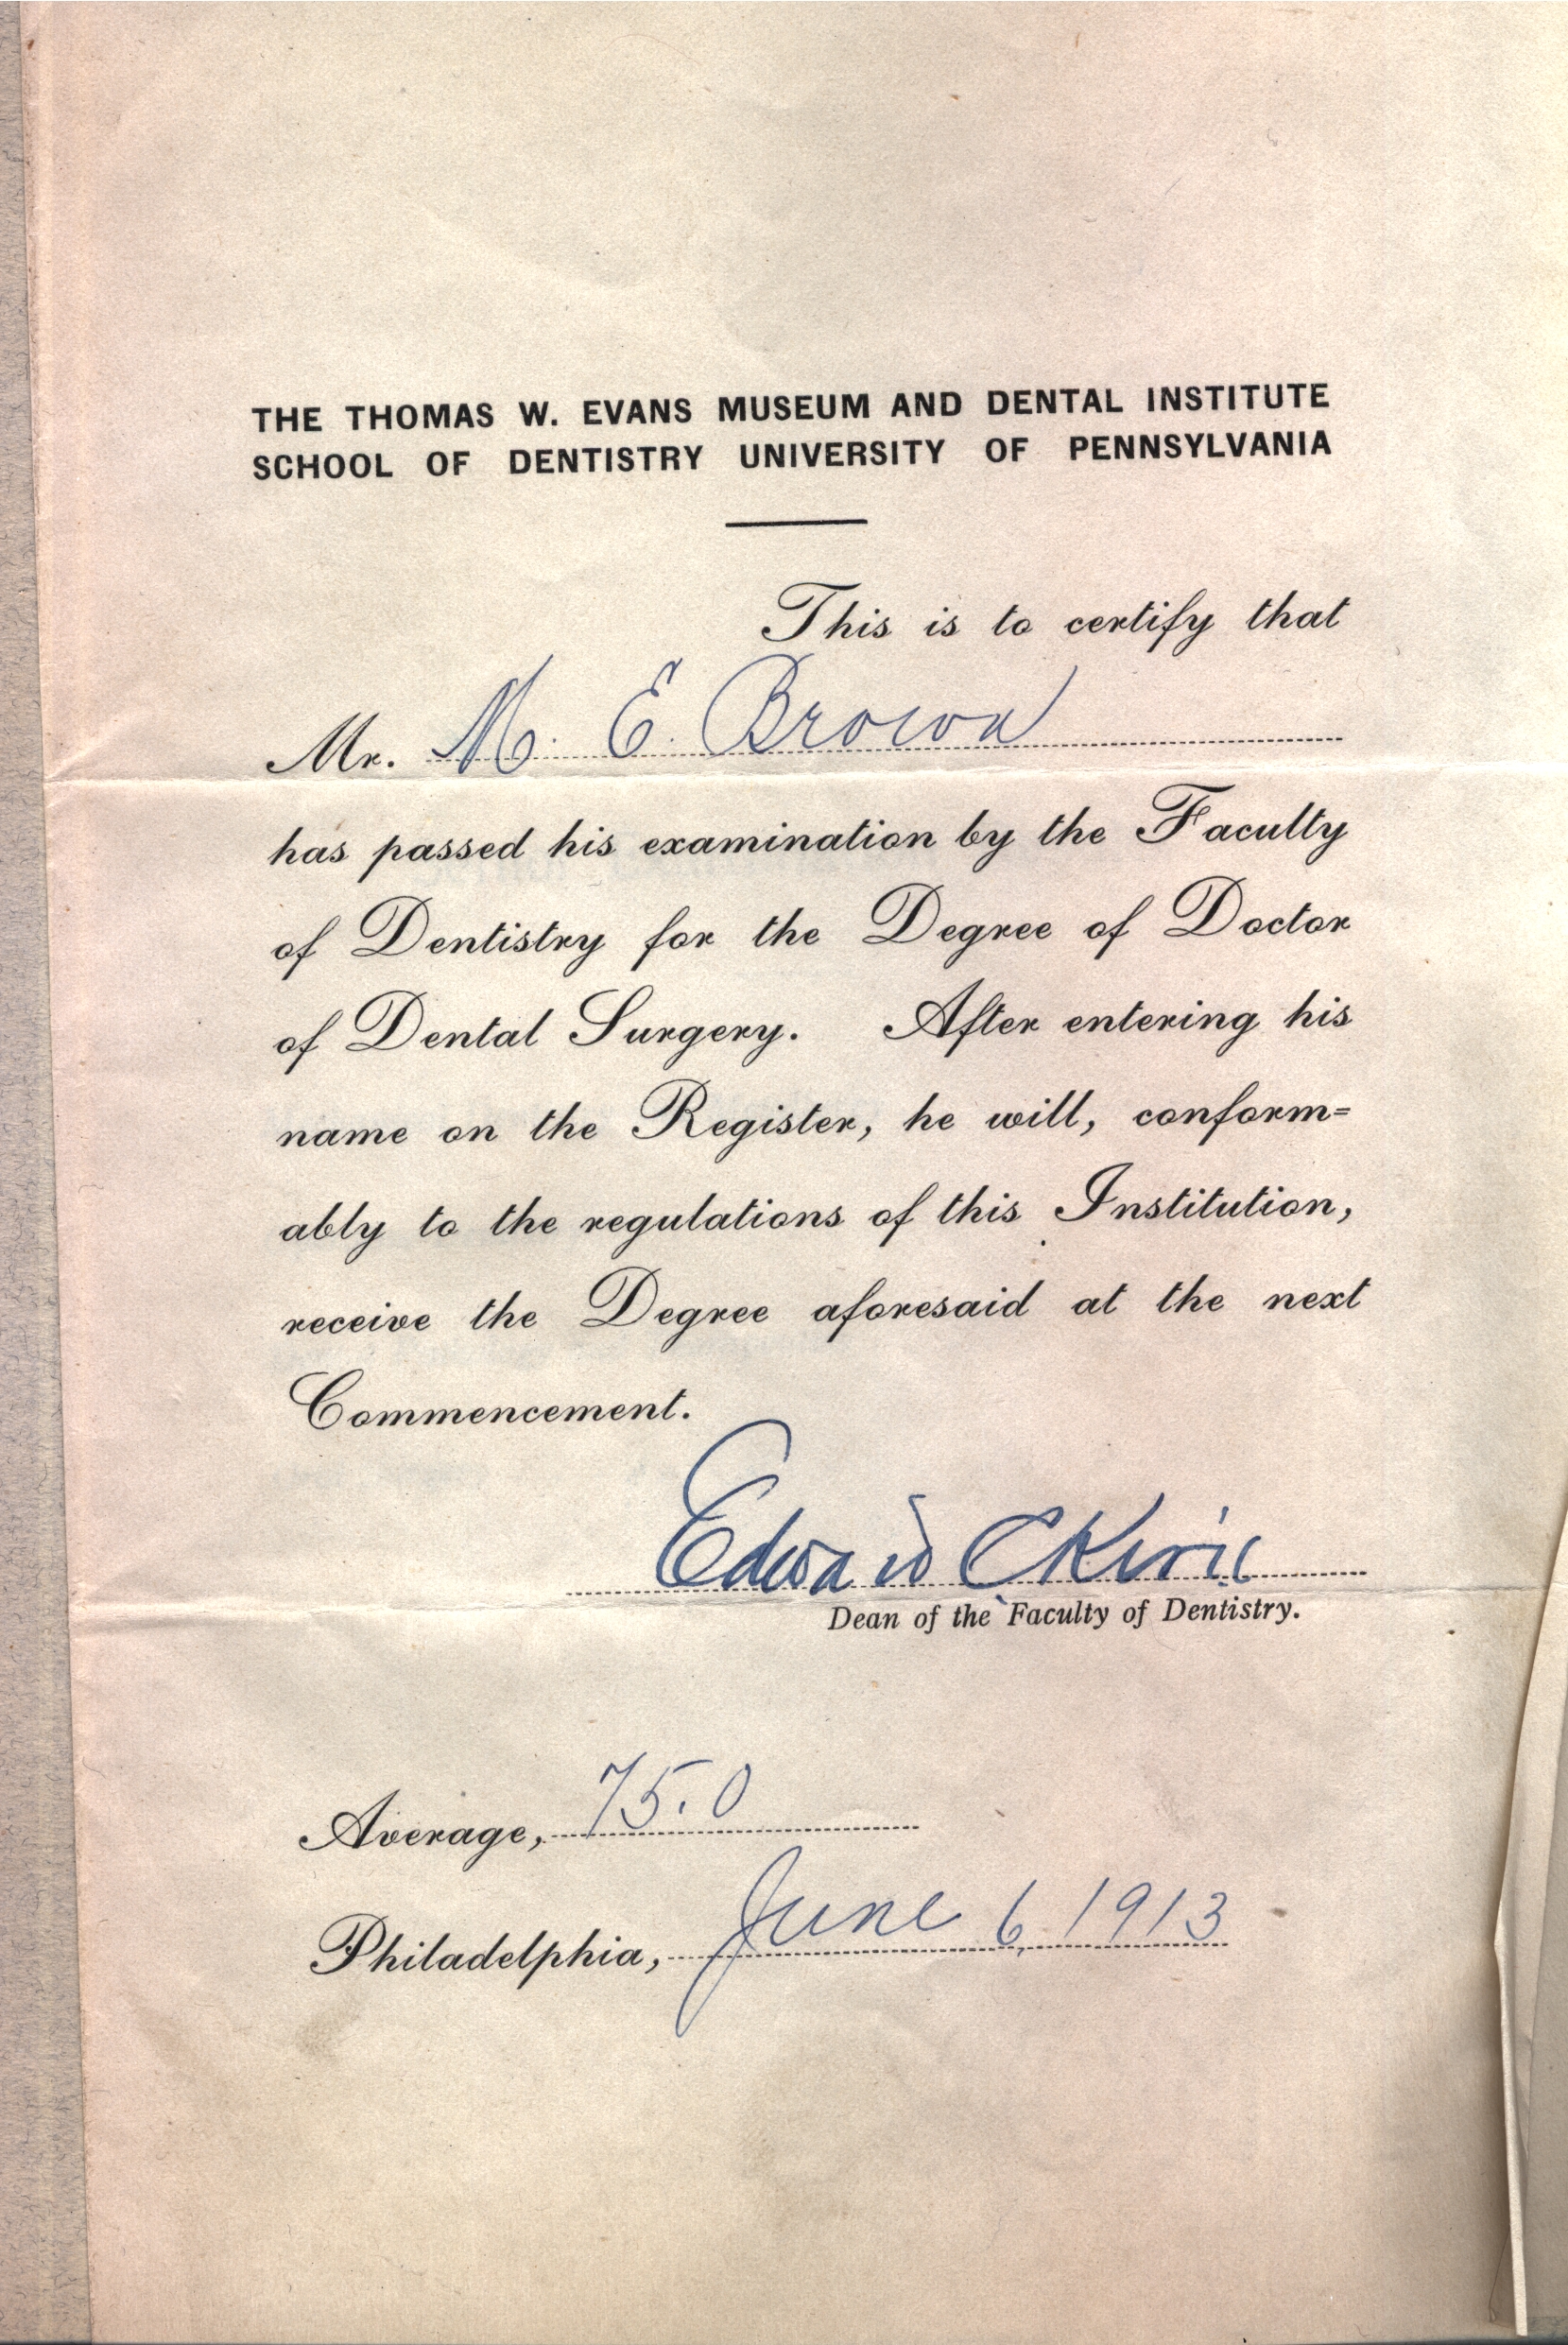 THE THOMAS W. EVANS MUSEUM AND DENTAL INSTITUTE
SCHOOL OF DENTISTRY UNIVERSITY OF PENNSYLVANIA
This is to certify that
Mr. M. E. Brown
has passed his examination by the Faculty
of Dentistry for the Degree of Doctor
of Dental Surgery. After entering his
name on the Register, he will, conform=
ably to the regulations of this Institution,
receive the Degree aforesaid at the next
Commencement.
Edward C Kirk
Dean of the Faculty of Dentistry.
Average, 75.0
Philadelphia, June 6, 1913